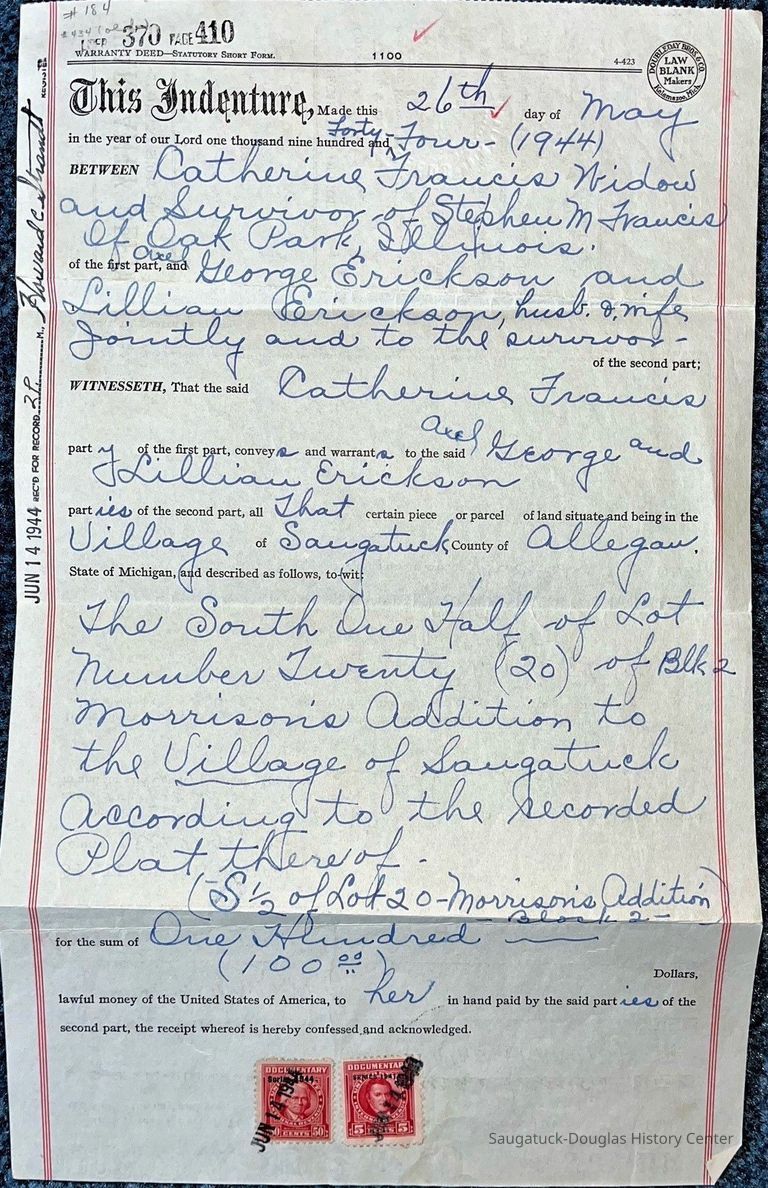 # 184
370 PAGE 410
WARRANTY DEED—STATUTORY SHORT FORM.
1100
4-423
DOUBLEDAY BROS. & CO.
LAW
BLANK
Makers
Kalamazoo, Mich.
This Indenture, Made this 26th day of May
in the year of our Lord one thousand nine hundred and Forty-Four- (1944)
BETWEEN Catherine Francis Widow
and Survivor of Stephen M Francis
Of Oak Park, Illinois.
of the first part, and Axel George Erickson and
Lillian Erickson, husb. & wife,
Jointly and to the survivor-
of the second part;
WITNESSETH, That the said Catherine Francis
part y of the first part, conveys and warrants to the said Axel George and
Lillian Erickson
parties of the second part, all That certain piece or parcel of land situate and being in the
Village of Saugatuck County of Allegan.
State of Michigan, and described as follows, to-wit:
The South One Half of Lot
Number Twenty (20) of Blk 2
Morrison's Addition to
the Village of Saugatuck
According to the recorded
Plat thereof.
(S 1/2 of Lot 20-Morrison's Addition)
- Block 2 -
for the sum of One Hundred
(100 00)
Dollars,
lawful money of the United States of America, to her in hand paid by the said parties of the
second part, the receipt whereof is hereby confessed and acknowledged.
DOCUMENTARY
CENTS 50
JUN 14 1944
DOCUMENTARY
5 5
JUN 14 1944 REC'D FOR RECORD M.,
Saugatuck-Douglas History Center